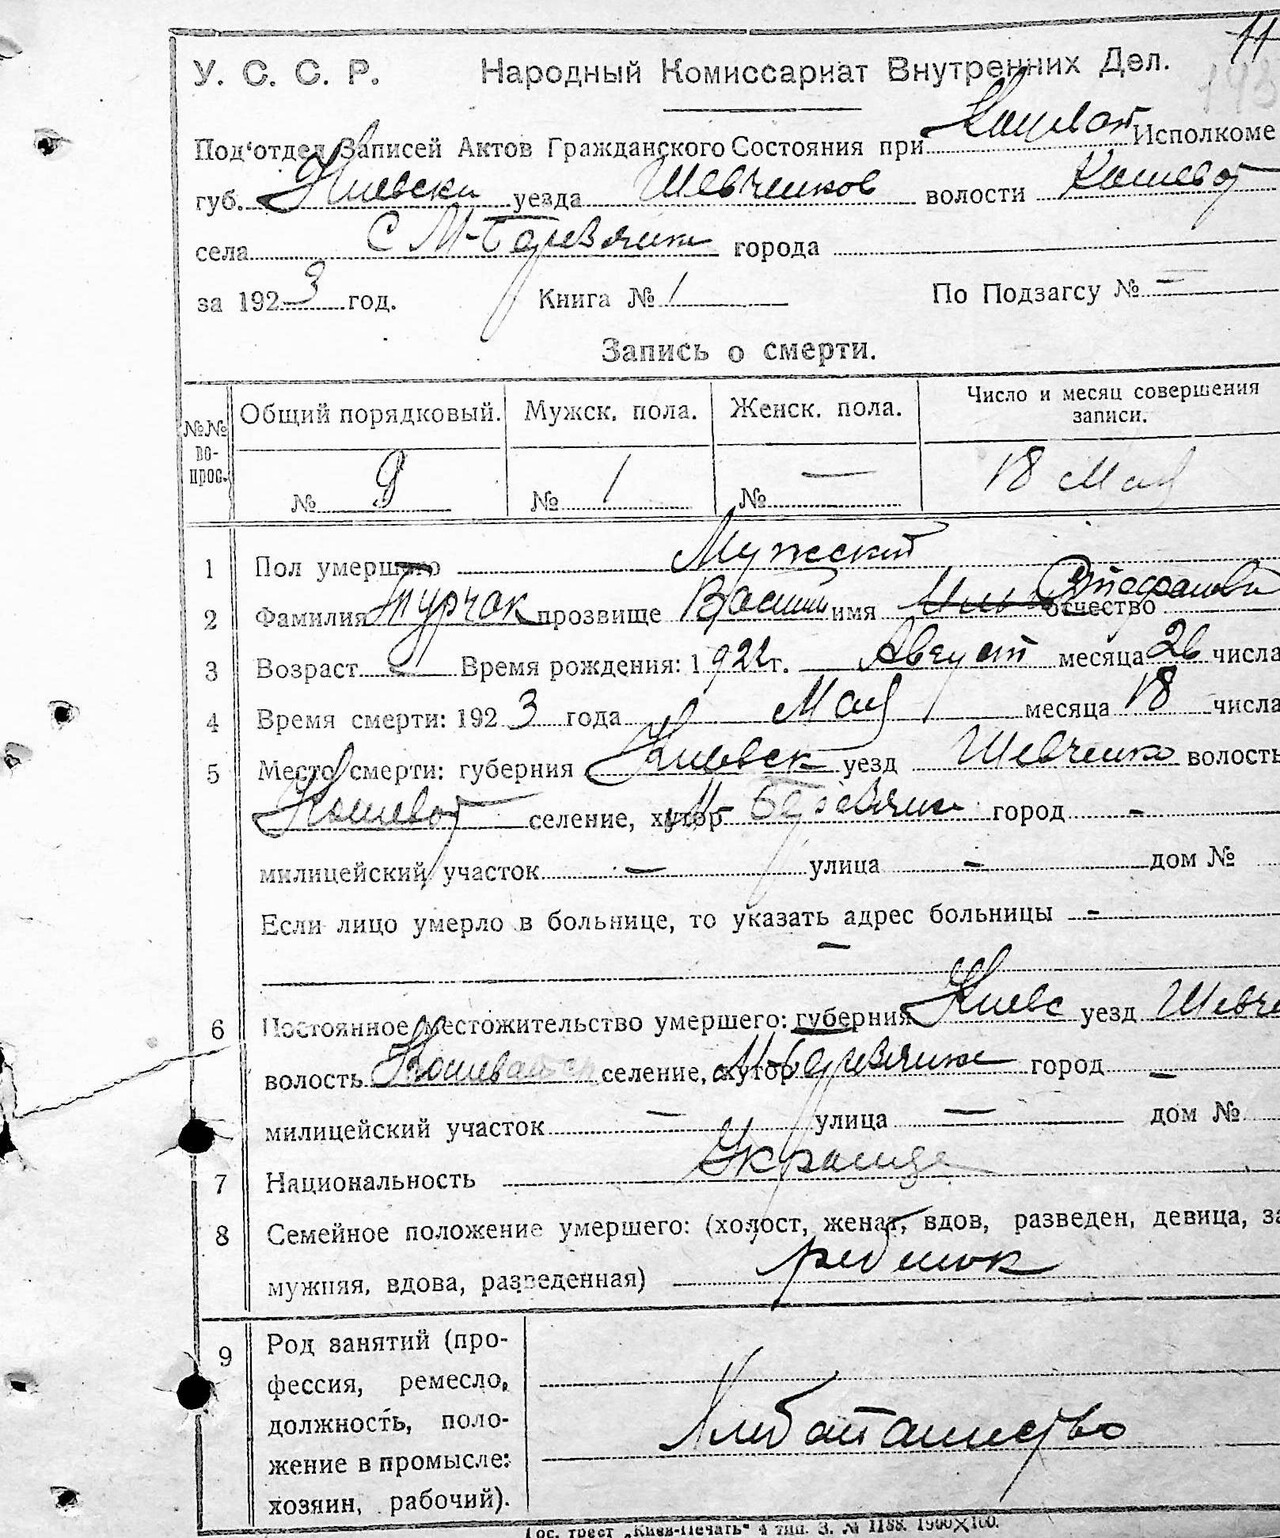 11
193
У. С. С. Р. Народный Комиссариат Внутренних Дел.
Под'отдел Записей Актов Гражданского Состояния при Кошеват Исполкоме
губ. Киевски уезда Шевченков волости Кошеват
села С М-Березянки города
за 1923 год. Книга № 1 По Подзагсу № —
Запись о смерти.
№№ во-прос. Общий порядковый. Мужск. пола. Женск. пола. Число и месяц совершения записи.
№ 9 № 1 № — 18 Мая
1 Пол умершего Мужский
2 Фамилия Турчак прозвище Васили имя отчество Стефанови
3 Возраст — Время рождения: 1922 г. Август месяца 26 числа
4 Время смерти: 1923 года Мая месяца 18 числа
5 Место смерти: губерния Киевск уезд Шевченко волость
Кошеват селение, хутор М-Березянк город -
милицейский участок — улица - дом №
Если лицо умерло в больнице, то указать адрес больницы -
—
6 Постоянное местожительство умершего: губерния Киевс уезд Шевче
волость Кошеватск селение, хутор М-Березянк город —
милицейский участок — улица — дом №
7 Национальность Украинце
8 Семейное положение умершего: (холост, женат, вдов, разведен, девица, за
мужняя, вдова, разведенная) ребенок
9 Род занятий (про-
фессия, ремесло,
должность, поло-
жение в промысле:
хозяин, рабочий).
Хлебапашество
Гос. трест „Киев-Печать" 4 тип. З. № 1188. 1900×100.